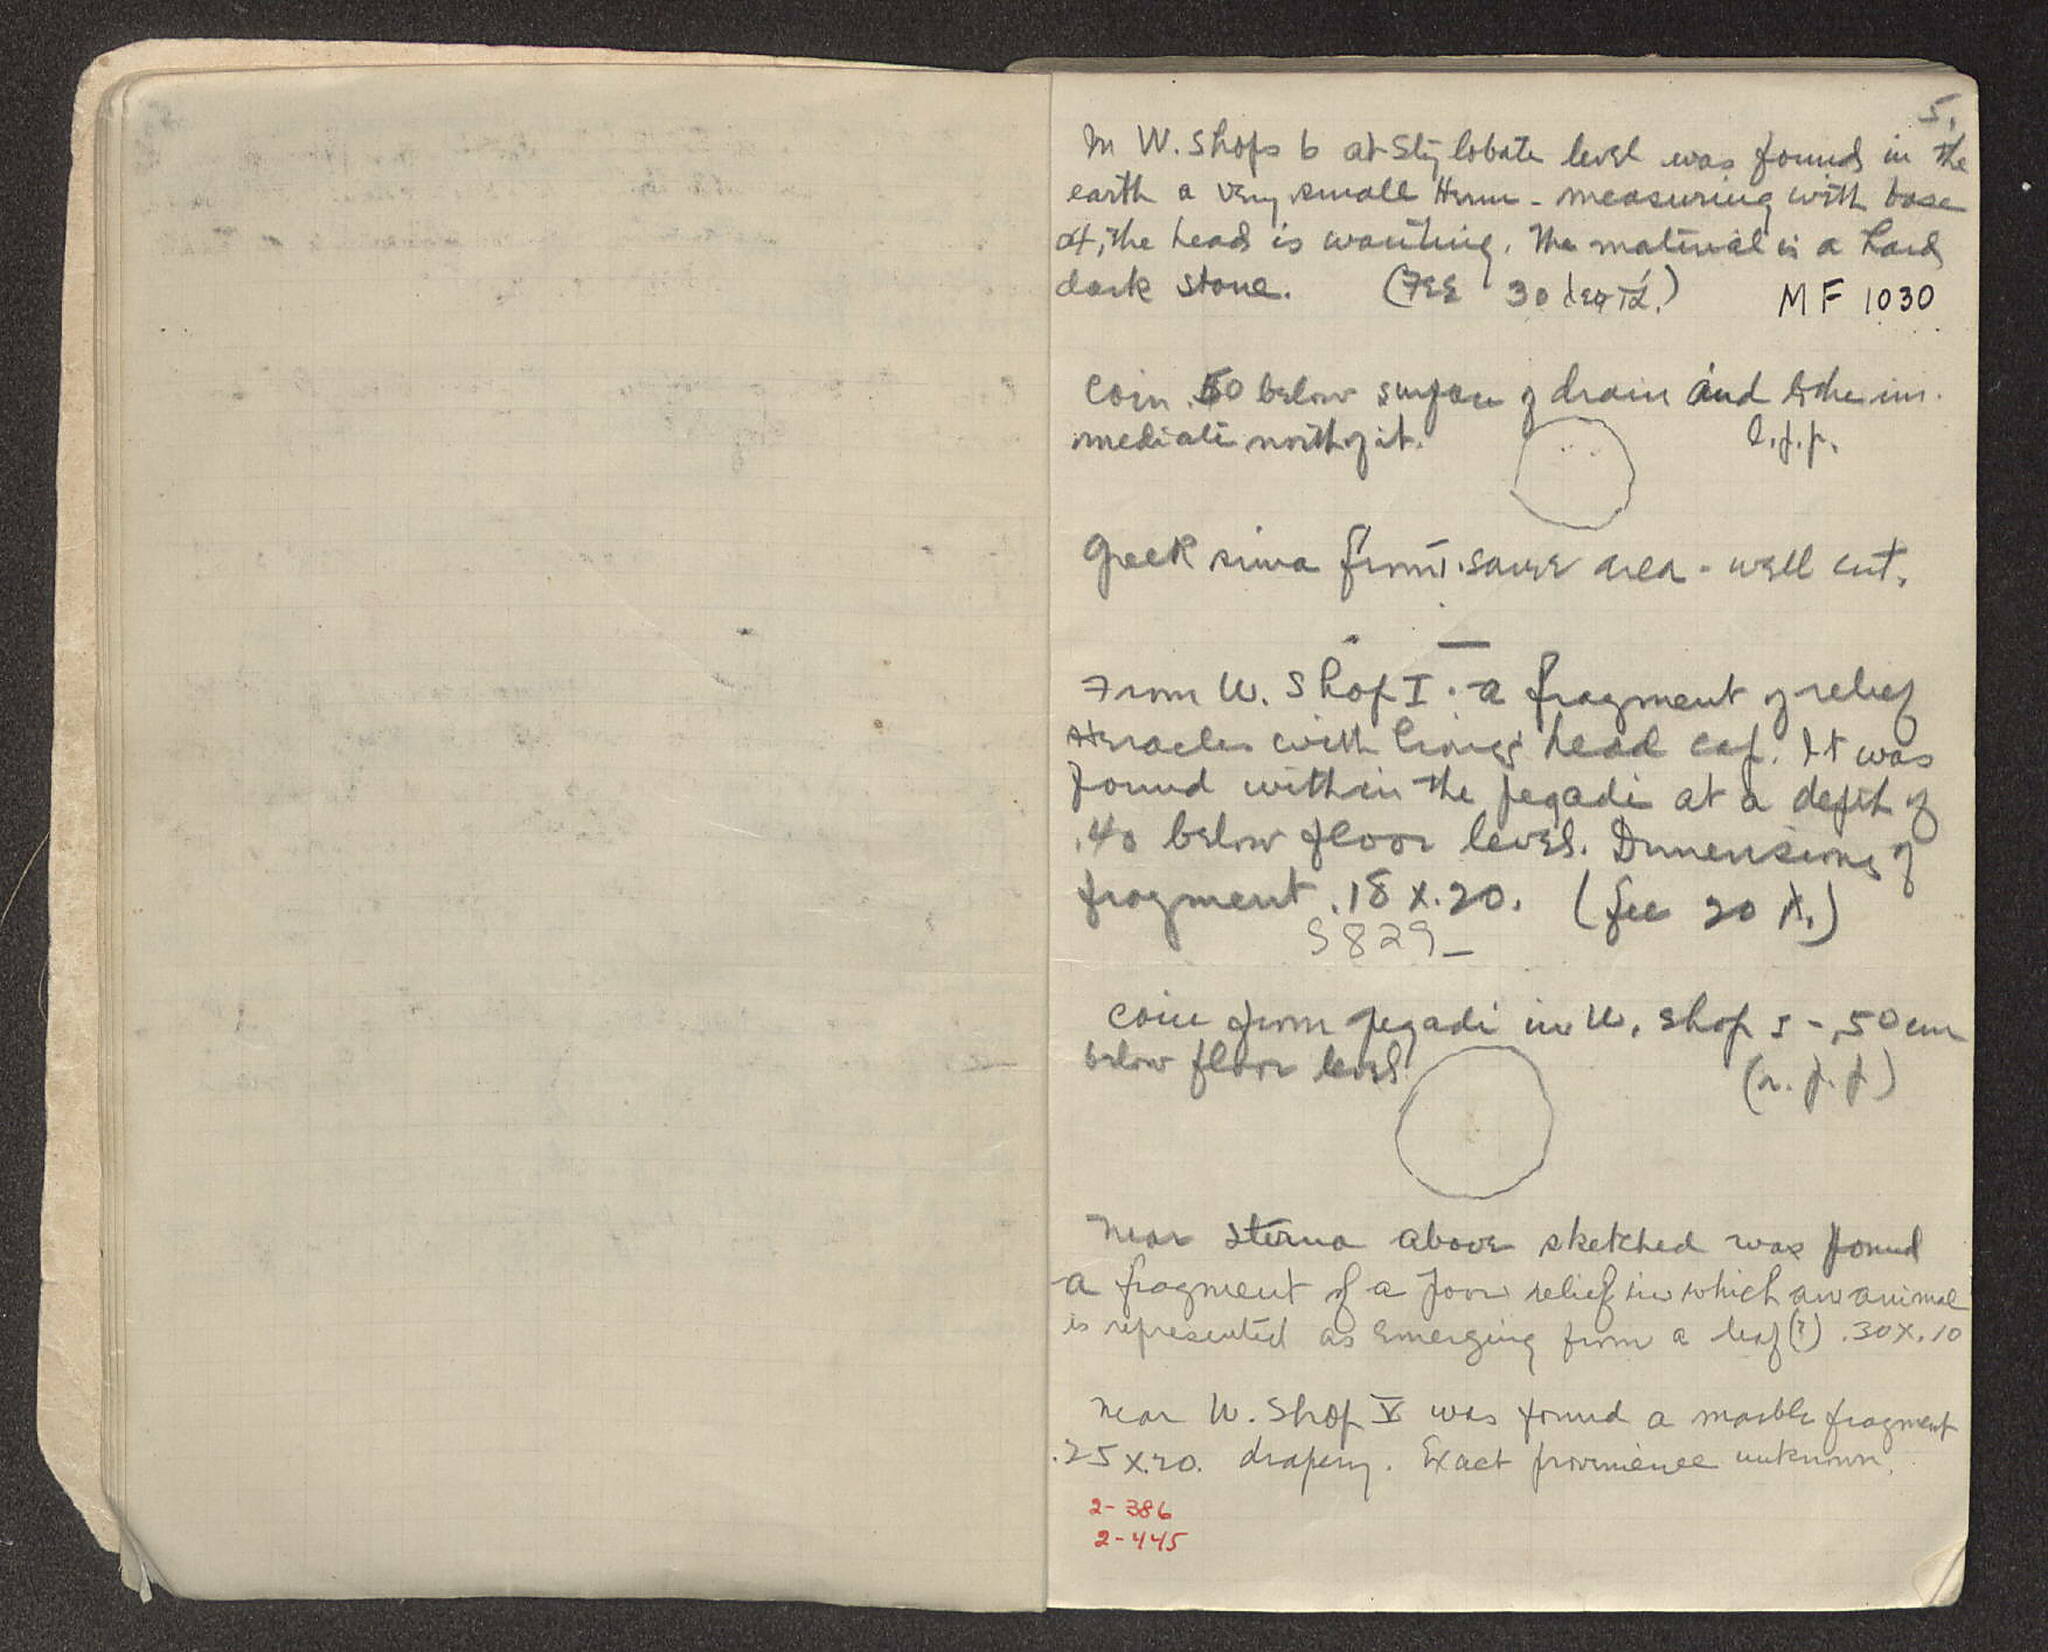 5.
In W. Shops 6 at Stylobate level was found in the
earth a very small Herm - measuring with base
the head is wanting. The material is a hard
dark stone. 30 MF 1030
Coin .50 below surface of drain and
mediate north of it.
Greek sima from same area - well cut.
From W. Shop I. a fragment of relief
Heracles with lion's head cap. It was
found within the pegadi at a depth of
.40 below floor level. Dimensions of
fragment .18 x .20. (fee 20 )
S 829 -
Coin from pegadi in W. Shop - .50 cm
below floor level
Near sterna above sketched was found
a fragment of a poor relief in which an animal
is represented as emerging from a leaf (?) .30 x .10
Near W. Shop V was found a marble fragment
.25 x .20. drapery. Exact provenience unknown.
2-386
2-445